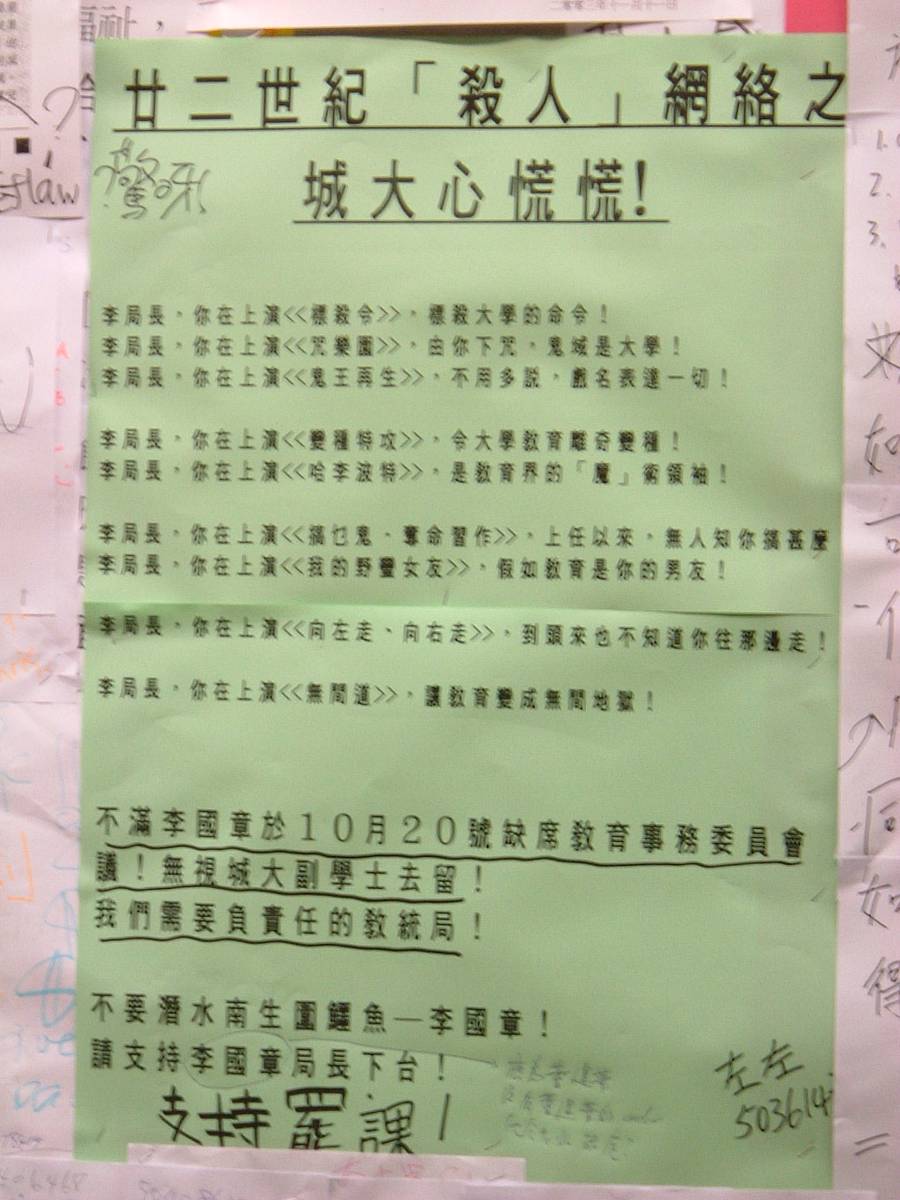 二零零三年十一月十一日
福祉，
廿二世紀「殺人」網絡之
驚呀!
城大心慌慌!
flaw
1.
2.
3.
李局長，你在上演<<標殺令>>，標殺大學的命令！
李局長，你在上演<<咒樂園>>，由你下咒，鬼域是大學！
李局長，你在上演<<鬼王再生>>，不用多說，戲名表達一切！
李局長，你在上演<<變種特攻>>，令大學教育離奇變種！
李局長，你在上演<<哈李波特>>，是教育界的「魔」術領袖！
李局長，你在上演<<搞乜鬼、奪命習作>>，上任以來，無人知你搞甚麼
李局長，你在上演<<我的野蠻女友>>，假如教育是你的男友！
李局長，你在上演<<向左走、向右走>>，到頭來也不知道你往那邊走！
李局長，你在上演<<無間道>>，讓教育變成無間地獄！
不滿李國章於１０月２０號缺席教育事務委員會
議！無視城大副學士去留！
我們需要負責任的教統局！
不要潛水南生圍鱷魚—李國章！
請支持李國章局長下台！
支持罷課！
左左
503614
如
個
何
如
得